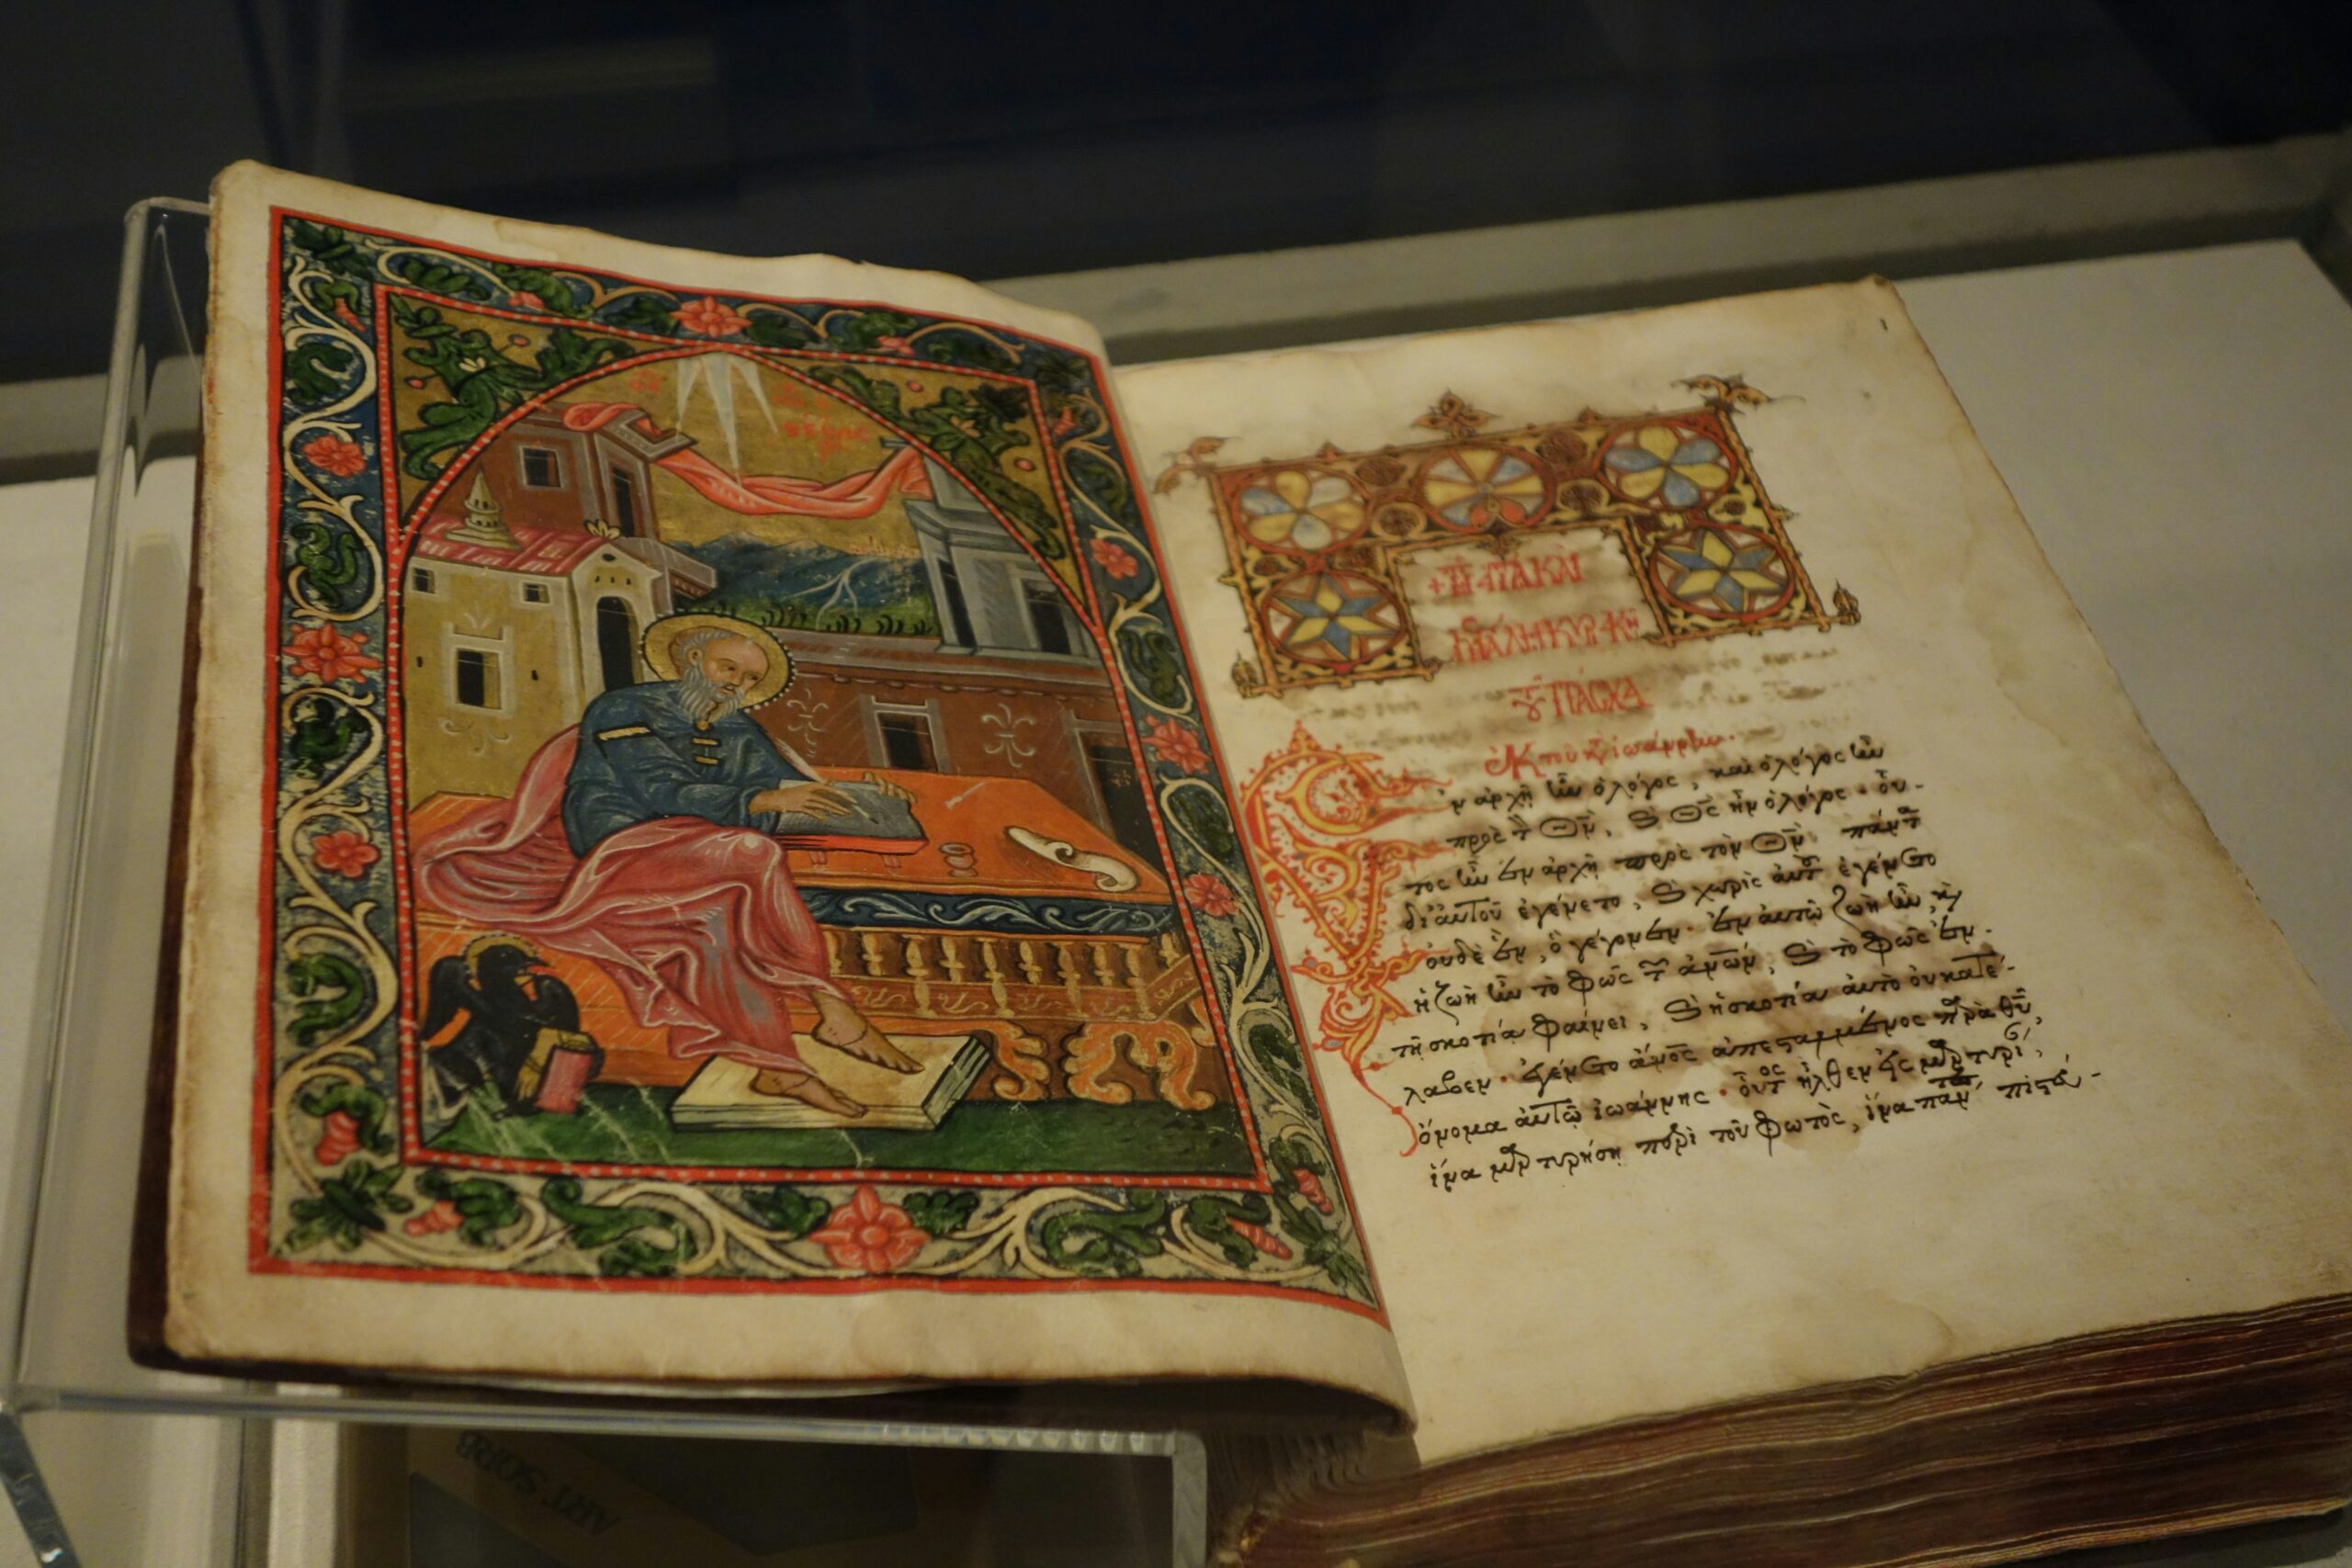 + Τῆ ἁγία καὶ
μεγάλη κυριακῆ
τοῦ ΠΑΣΧΑ
ἐκ τοῦ κατὰ ἰωάννην.
Ἐν ἀρχῆ ἦν ὁ λόγος, καὶ ὁ λόγος ἦν
πρὸς τ Θν̅, ϗ Θς̅ ἦν ὁ λόγος. οὗ-
τος ἦν ἐν ἀρχῆ πρὸς τὸν Θν̅. πάντ
δι' αὐτοῦ ἐγένετο, ϗ χωρὶς αὐτ ἐγένετο
οὐδὲ ἓν, ὃ γέγονεν. ἐν αὐτῶ ζωὴ ἦν, ϗ
ἡ ζωὴ ἦν τὸ φῶς τ ἀν̅ων, ϗ τὸ φῶς ἐν
τῆ σκοτία φαίνει, ϗ ἡ σκοτία αὐτὸ οὐ κατέ-
λαβεν. ἐγένετο ἄν̅ος ἀπεσταλμένος πρὰ θῦ,
ὄνομα αὐτῶ ἰωάννης. οὗτος ἦλθεν εἰς μρτυρί,
ἵνα μρτυρήση περὶ τοῦ φωτὸς, ἵνα πάντ πιστ-
ART SORB